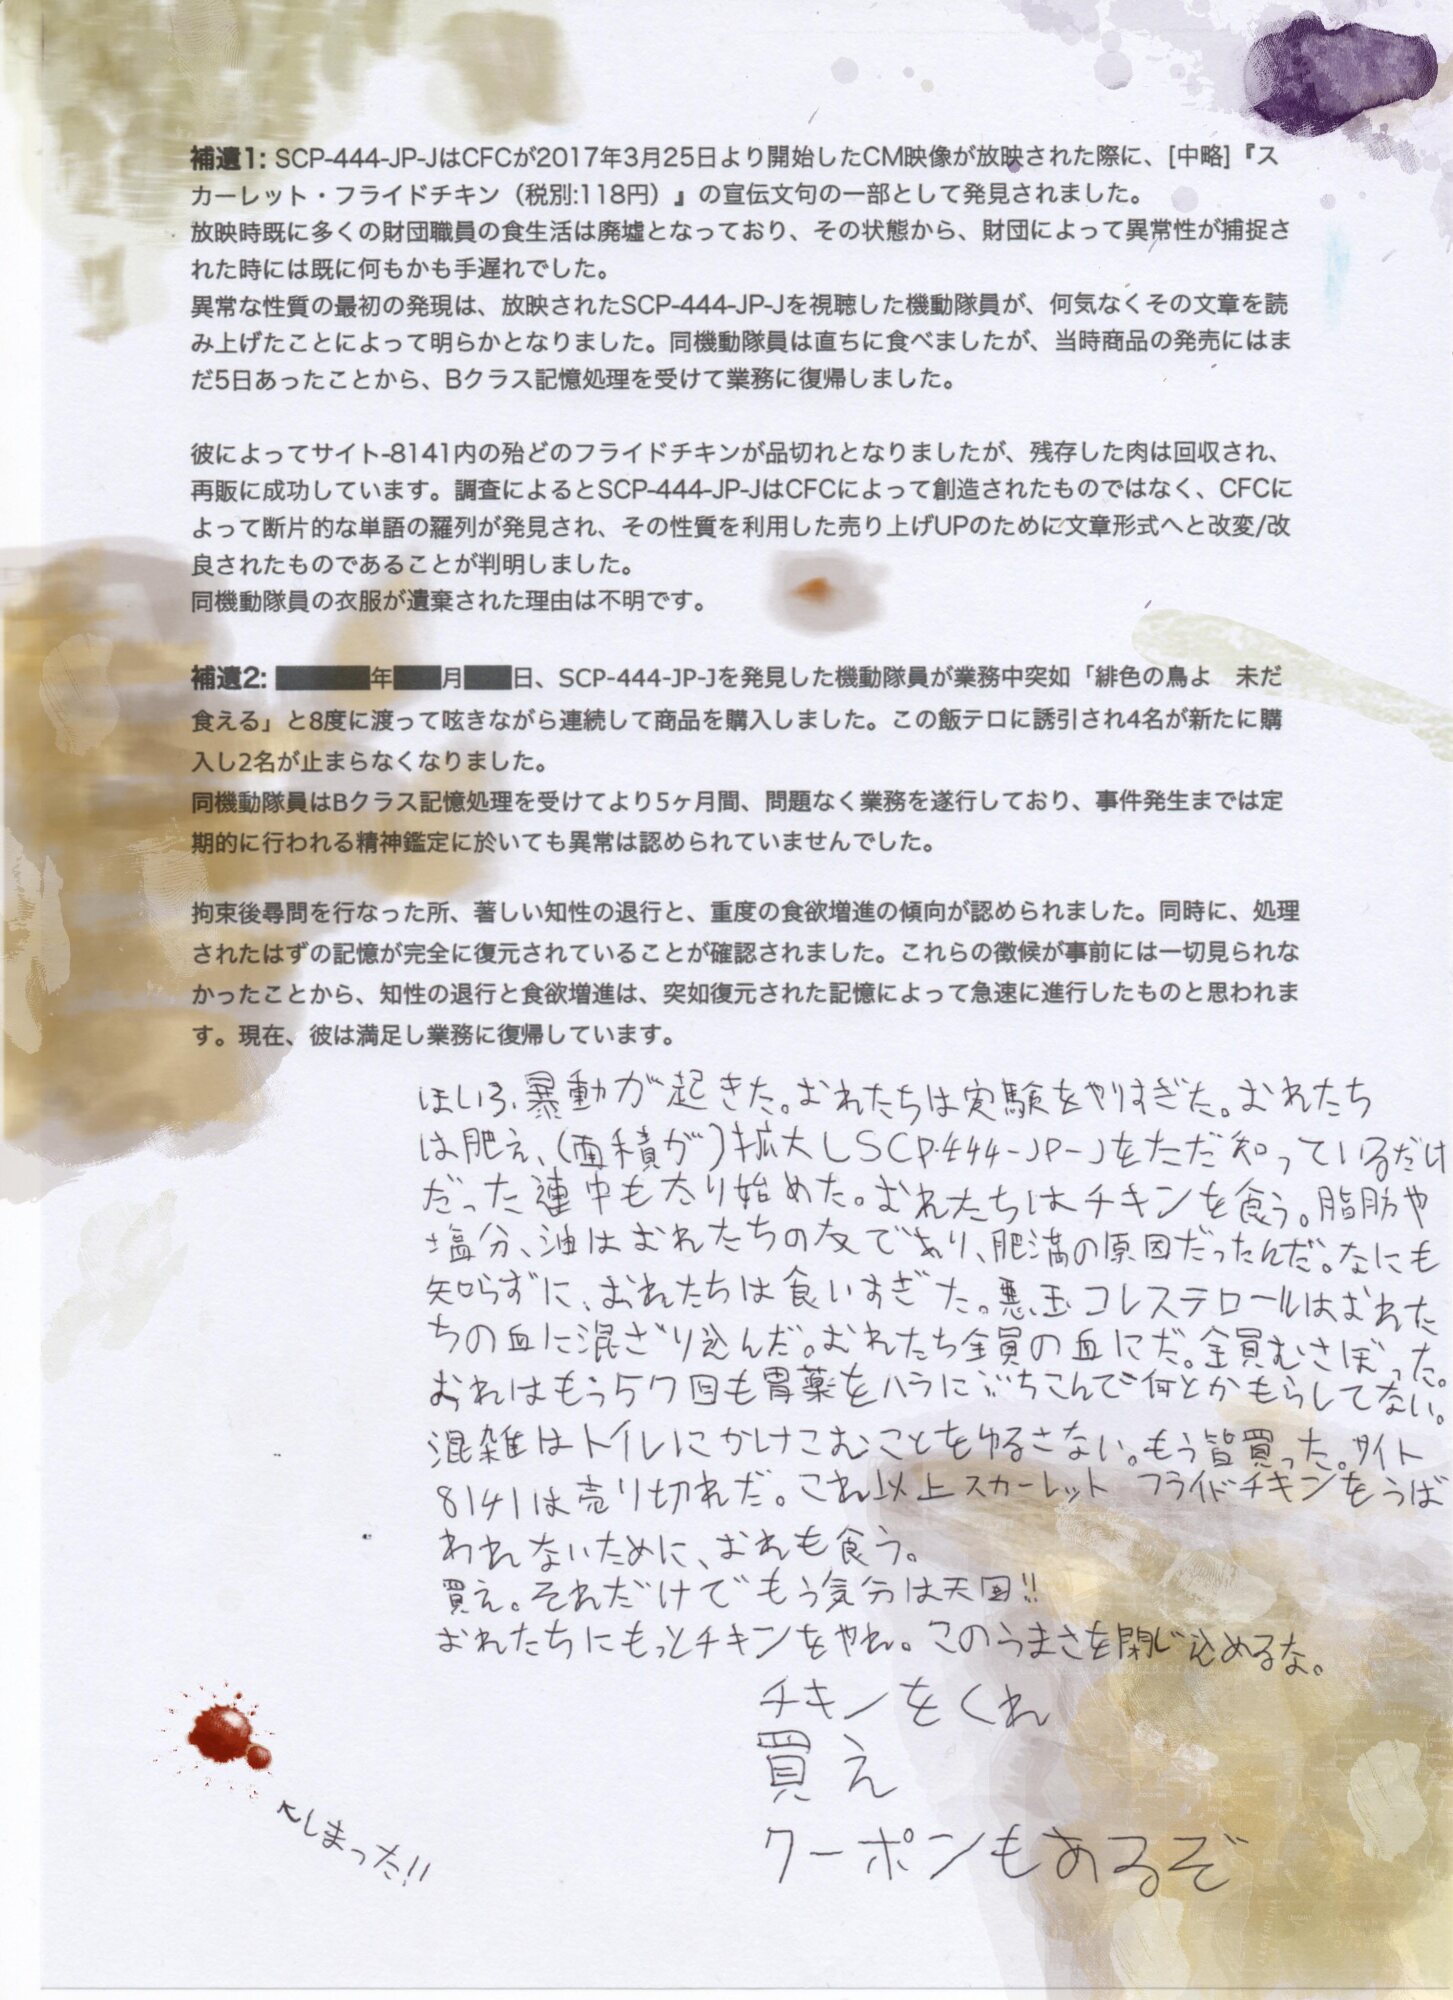 補遺1: SCP-444-JP-JはCFCが2017年3月25日より開始したCM映像が放映された際に、[中略]『ス
カーレット・フライドチキン（税別:118円）』の宣伝文句の一部として発見されました。
放映時既に多くの財団職員の食生活は廃墟となっており、その状態から、財団によって異常性が捕捉さ
れた時には既に何もかも手遅れでした。
異常な性質の最初の発現は、放映されたSCP-444-JP-Jを視聴した機動隊員が、何気なくその文章を読
み上げたことによって明らかとなりました。同機動隊員は直ちに食べましたが、当時商品の発売にはま
だ5日あったことから、Bクラス記憶処理を受けて業務に復帰しました。
彼によってサイト-8141内の殆どのフライドチキンが品切れとなりましたが、残存した肉は回収され、
再販に成功しています。調査によるとSCP-444-JP-JはCFCによって創造されたものではなく、CFCに
よって断片的な単語の羅列が発見され、その性質を利用した売り上げUPのために文章形式へと改変/改
良されたものであることが判明しました。
同機動隊員の衣服が遺棄された理由は不明です。
補遺2: 年月日、SCP-444-JP-Jを発見した機動隊員が業務中突如「緋色の鳥よ　未だ
食える」と8度に渡って呟きながら連続して商品を購入しました。この飯テロに誘引され4名が新たに購
入し2名が止まらなくなりました。
同機動隊員はBクラス記憶処理を受けてより5ヶ月間、問題なく業務を遂行しており、事件発生までは定
期的に行われる精神鑑定に於いても異常は認められていませんでした。
拘束後尋問を行なった所、著しい知性の退行と、重度の食欲増進の傾向が認められました。同時に、処理
されたはずの記憶が完全に復元されていることが確認されました。これらの徴候が事前には一切見られな
かったことから、知性の退行と食欲増進は、突如復元された記憶によって急速に進行したものと思われま
す。現在、彼は満足し業務に復帰しています。
暴動が起きた。おれたちは実験をやりすぎた。おれたち
は肥え、(面積が)拡大しSCP-444-JP-Jをただ知っているだけ
だった連中も太り始めた。おれたちはチキンを食う。脂肪や
塩分、油はおれたちの友であり、肥満の原因だったんだ。なにも
知らずに、おれたちは食いすぎた。悪玉コレステロールはおれた
ちの血に混ざり込んだ。おれたち全員の血にだ。全員むさぼった。
おれはもう57回も胃薬をハラにぶちこんで何とかもらしてない。
混雑はトイレにかけこむことをゆるさない。もう皆買った。サイト
8141は売り切れだ。これ以上スカーレット フライドチキンをうば
われないために、おれも食う。
買え。それだけでもう気分は天国!!
おれたちにもっとチキンをやれ。このうまさを閉じ込めるな。
チキンをくれ
買え
クーポンもあるぞ
↖しまった!!